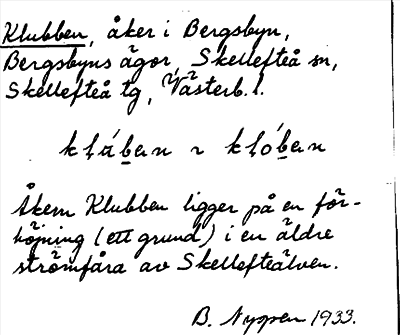 Klubben, åker i Bergsbyn,
Bergsbyns ägor, Skellefteå sn,
Skellefteå tg, Västerb. l.
klába̲n ~ klóba̲n
Åkern Klubben ligger på en för-
höjning (ett grund) i en äldre
strömfåra av Skellefteälven.
B. Nyppen 1933.